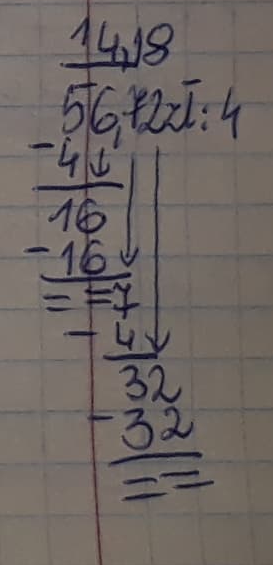 14,18
56,72zł : 4
- 4
16
- 16
= = 7
- 4
32
- 32
= =